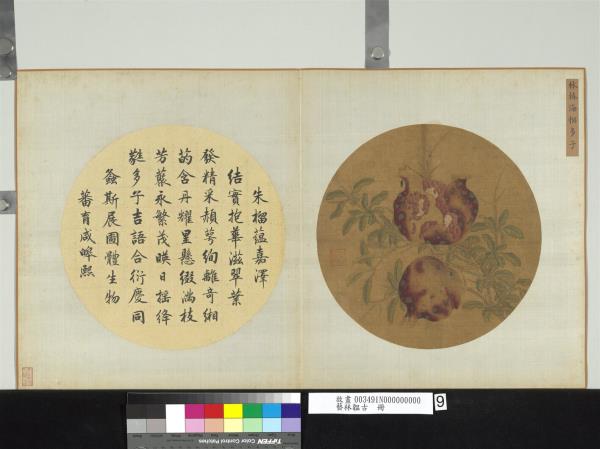 林椿海榴多子
朱榴蘊嘉澤
結實抱華滋翠葉
發精采頳萼絢離奇緗
菂含丹耀星懸綴滿枝
芳永繁茂暎日搖絳
甤多子吉語合衍慶同
螽斯展圖體生物
蕃育咸皞熙
故畫 003491N000000000
藝林韞古 冊
9
TIFFEN Color Control Patches